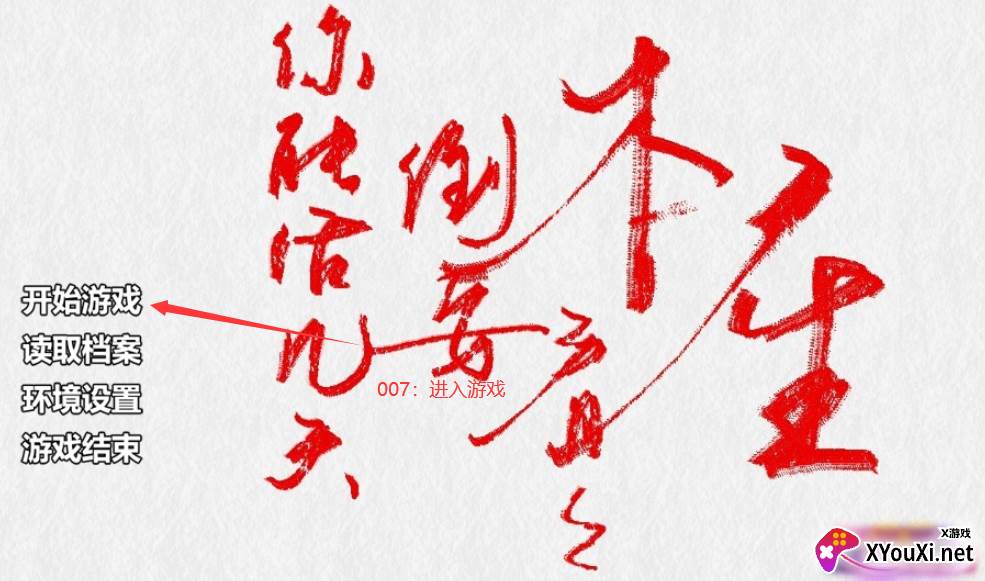 本
倒要
你能活几天
开始游戏
读取档案
环境设置
游戏结束
007：进入游戏
X游戏
XYouXi.net